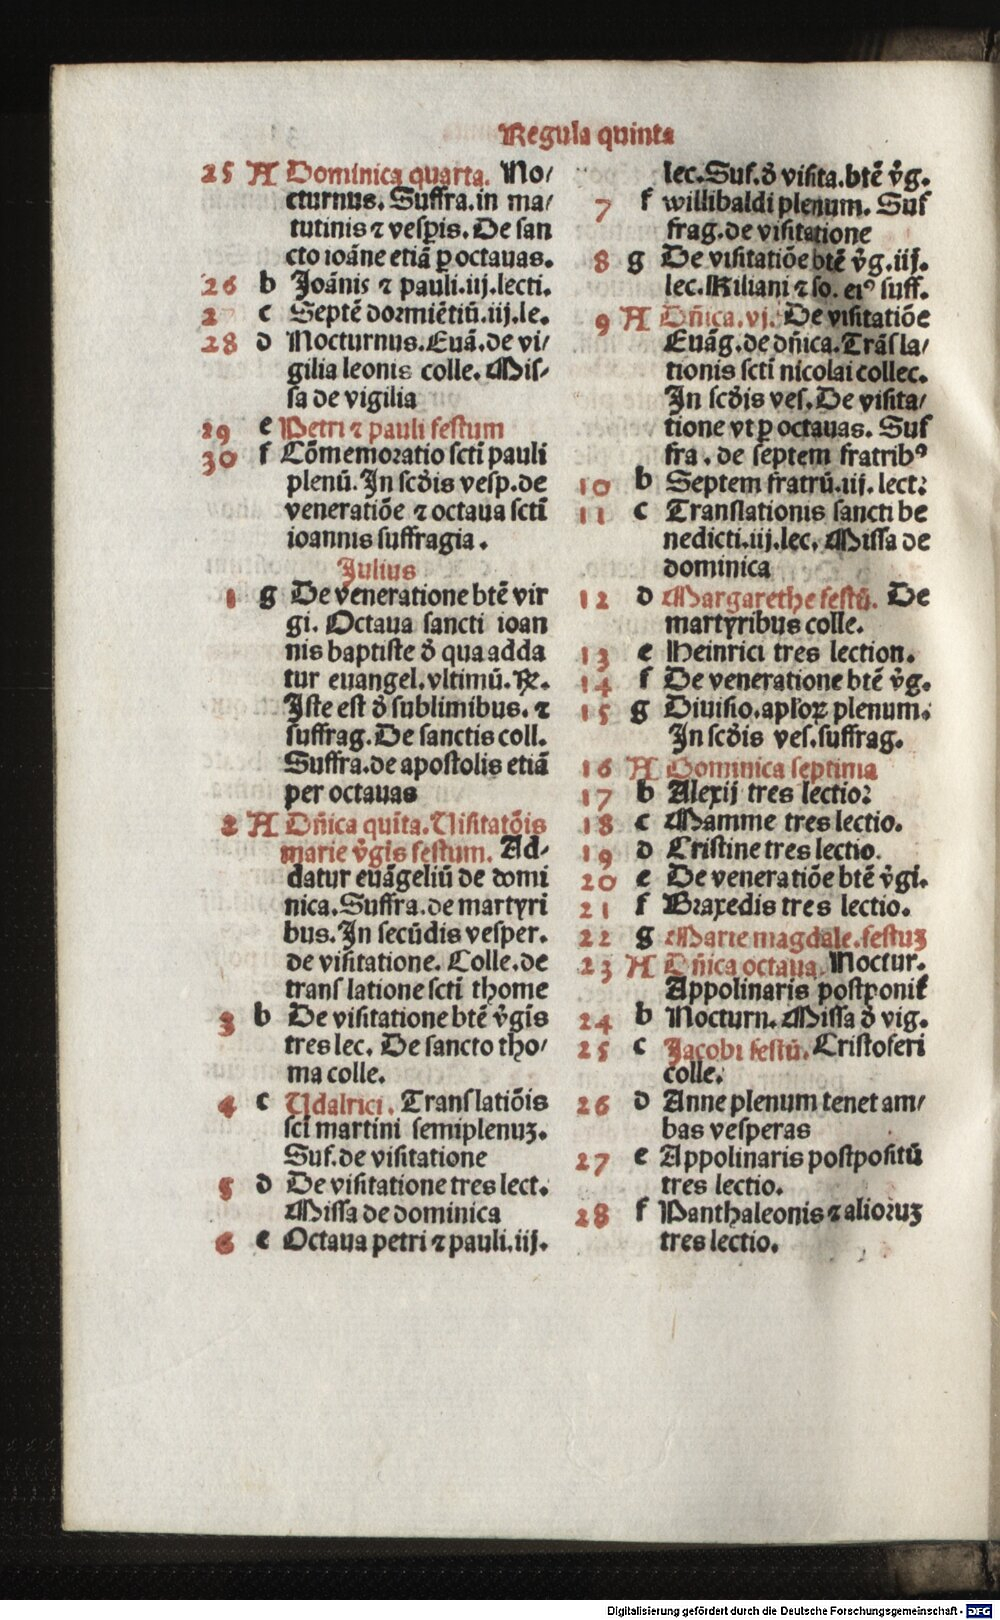 Regula quinta
25 A Dominica quarta. No/
cturnus. Suffra. in ma/
tutinis ⁊ vesꝑis. De san
cto ioāne etiā ꝑ octauas.
26 b Joānis ⁊ pauli. iij. lecti.
27 c Septē dormiētiū. iij. le.
28 d Nocturnus. Euā. de vi/
gilia leonis colle. Mis/
sa de vigilia
29 e Petri ⁊ pauli festum
30 f Cōmemoratio scti pauli
plenū. In scd̄is vesp. de
veneratiōe ⁊ octaua scti
ioannis suffragia.
Julius
1 g De veneratione btē vir
gi. Octaua sancti ioan
nis baptiste d̄ qua adda
tur euangel. vltimū. ℟.
Iste est d̄ sublimibus. ⁊
suffrag. De sanctis coll.
Suffra. de apostolis etiā
per octauas
2 A Dn̄ica quīta. Uisitatōis
marie v̄gis festum. Ad/
datur euāgeliū de domi
nica. Suffra. de martyri
bus. In secūdis vesper.
de visitatione. Colle. de
translatione scti thome
3 b De visitatione btē v̄gis
tres lec. De sancto tho/
ma colle.
4 c Udalrici. Translatiōis
sci martini semiplenuꝫ.
Suf. de visitatione
5 d De visitatione tres lect.
Missa de dominica
6 e Octaua petri ⁊ pauli. iij.
lec. Suf. d̄ visita. btē v̄g.
7 f willibaldi plenum. Suf
frag. de visitatione
8 g De visitatiōe btē v̄g. iij.
lec. Kiliani ⁊ so. eiꝰ suff.
9 A Dn̄ica. vj. De visitatiōe
Euāg. de dn̄ica. Trāsla/
tionis scti nicolai collec.
In scd̄is ves. De visita/
tione vt ꝑ octauas. Suf
fra. de septem fratribꝰ
10 b Septem fratrū. iij. lect:
11 c Translationis sancti be
nedicti. iij. lec. Missa de
dominica
12 d Margarethe festū. De
martyribus colle.
13 e Heinrici tres lection.
14 f De veneratione btē v̄g.
15 g Diuisio. apl'oꝝ plenum.
In scd̄is ves. suffrag.
16 A Dominica septima
17 b Alexij tres lectio:
18 c Mamme tres lectio.
19 d Cristine tres lectio.
20 e De veneratiōe btē v̄gi.
21 f Braxedis tres lectio.
22 g Marie magdale. festuꝫ
23 A Dn̄ica octaua. Noctur.
Appolinaris postponit̄
24 b Nocturn. Missa d̄ vig.
25 c Jacobi festū. Cristoferi
colle.
26 d Anne plenum tenet am/
bas vesperas
27 e Appolinaris postpositū
tres lectio.
28 f Panthaleonis ⁊ alioruꝫ
tres lectio.
Digitalisierung gefördert durch die Deutsche Forschungsgemeinschaft - DFG